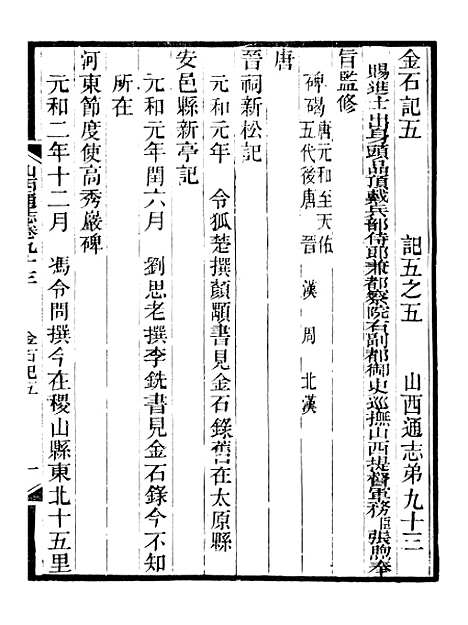 金石記五　記五之五　山西通志弟九十三
賜進士出身頭品頂戴兵部侍郎兼都察院右副都御史巡撫山西提督軍務臣張煦奉
旨監修
碑碣 唐元和至天佑 五代後唐 晉 漢 周 北漢
唐
晉祠新松記
元和元年 令狐楚撰顏顒書見金石錄舊在太原縣
安邑縣新亭記
元和元年閏六月 劉思老撰李銑書見金石錄今不知
所在
河東節度使高秀巖碑
元和二年十二月 馮令問撰今在稷山縣東北十五里
山西通志卷九十三 金石記五 一